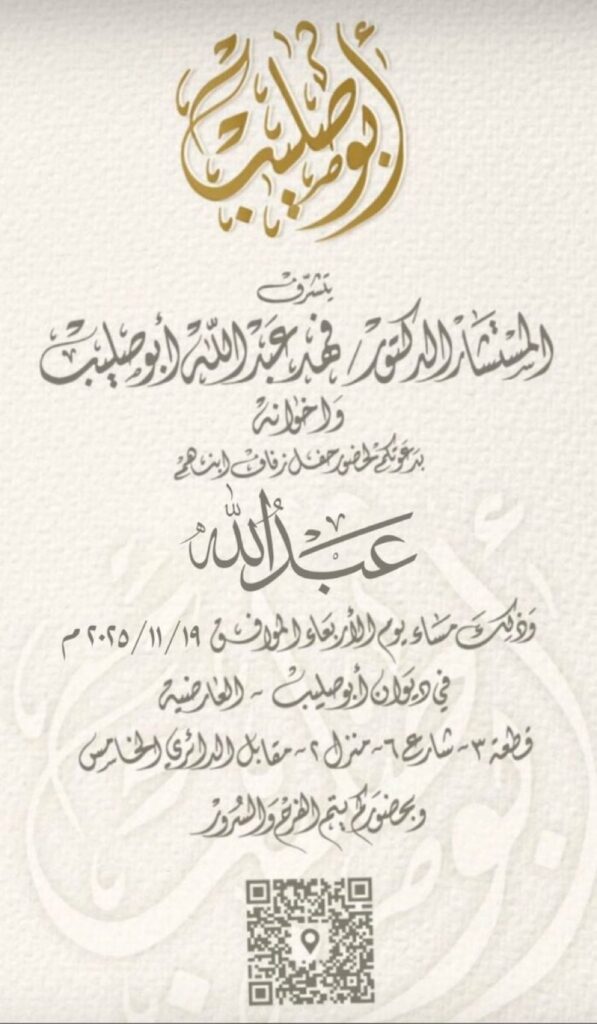 أبو صليب
يتشرف
المستشار الدكتور / فهد عبدالله أبو صليب
وإخوانه
بدعوتكم لحضور حفل زفاف ابنهم
عبدالله
وَذلِكَ مساء يوم الأربعاء الموافق ٢٠٢٥/١١/١٩ م
في ديوان أبو صليب - العارضية
قطعة ٣ - شارع ٦ - منزل ٢ - مقابل الدائري الخامس
وبحضوركم يتم الفرح والسرور